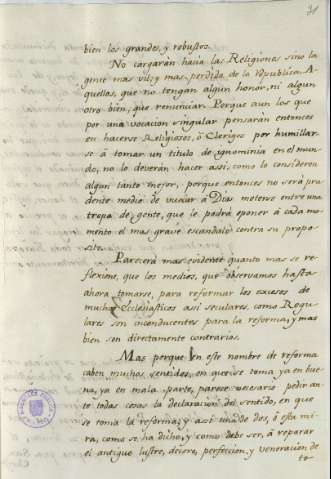 31
bien los grandes, y robustos.
No cargarán hacia las Religiones sino la
gente mas vil, y mas perdida de la Republica. A-
quellas, que no tengan algun honor, ni algun
otro bien, que renunciar. Porque aun los que
por una vocacion singular pensarán entonces
en hacerse Religiosos, ó Clerigos por humillar-
se á tomar un titulo de ignominia en el mun-
do, no lo deverán hacer assi, como lo consideren
algun tanto mejor, porque entonces no será pru-
dente medio de buscar á Dios meterse entre una
tropa de gente, que le podrá oponer á cada mo-
mento el mas grave escandalo contra su propo-
sito.
Parecerá mas evidente quanto mas se re-
flexione, que los medios, que observamos hasta
ahora tomarse, para reformar los excesos de
muchos Ecclesiasticos assi seculares, como Regu-
lares son inconducentes para la reforma, y mas
bien son directamente contrarios.
Mas porque en este nombre de reforma
caben muchos sentidos, en que se toma ya en bue-
na, ya en mala parte, parece necesario pedir an-
te todas cosas la declaracion del sentido, en que
se toma la reforma; y assi una de dos, ó esta mi-
ra, como se ha dicho, y como debe ser, á reparar
el antiguo lustre, decoro, perfeccion, y veneracion de
to-